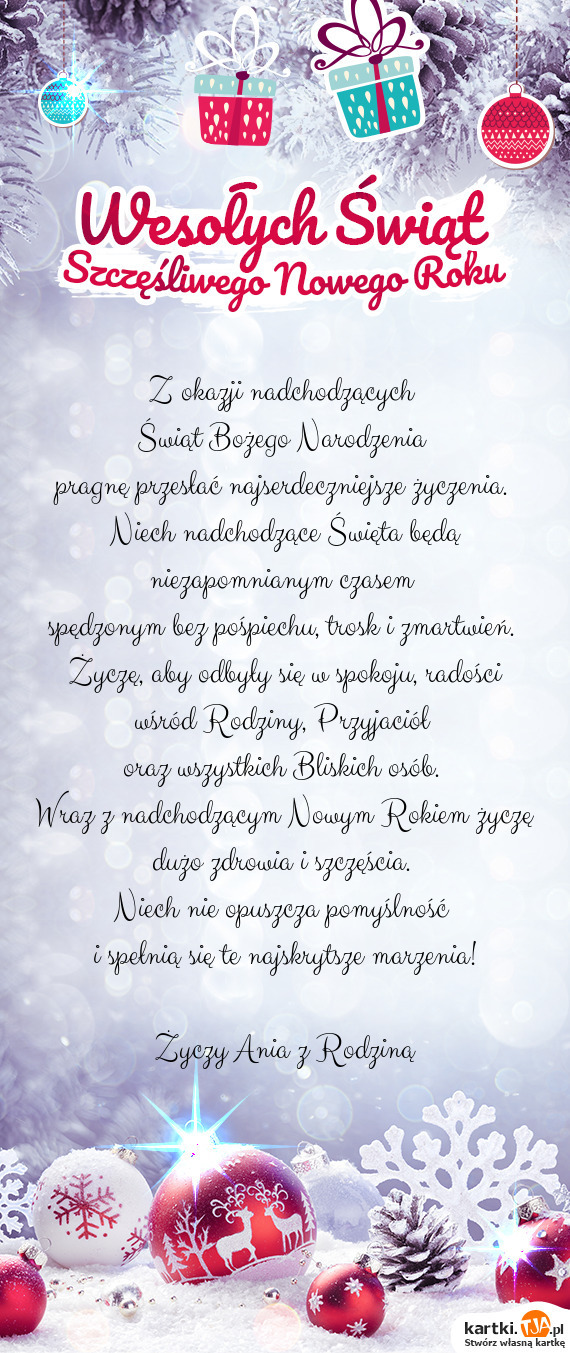 Wesołych Świąt
Szczęśliwego Nowego Roku
Z okazji nadchodzących
Świąt Bożego Narodzenia
pragnę przesłać najserdeczniejsze życzenia.
Niech nadchodzące Święta będą
niezapomnianym czasem
spędzonym bez pośpiechu, trosk i zmartwień.
Życzę, aby odbyły się w spokoju, radości
wśród Rodziny, Przyjaciół
oraz wszystkich Bliskich osób.
Wraz z nadchodzącym Nowym Rokiem życzę
dużo zdrowia i szczęścia.
Niech nie opuszcza pomyślność
i spełnią się te najskrytsze marzenia!
Życzy Ania z Rodziną
kartki.TJA.pl
Stwórz własną kartkę